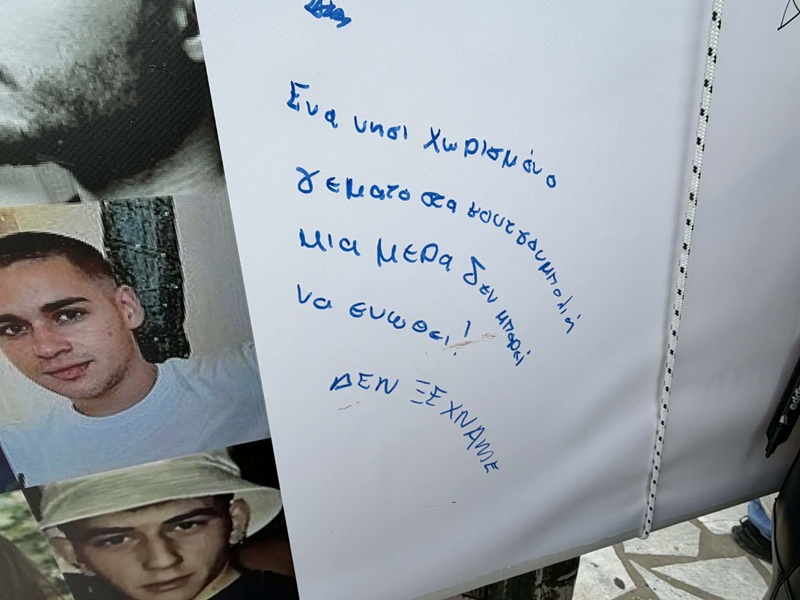 Ενα νησι χωρισμένο
γεματο στα κουτσουμπολιά
μια μερα δεν μπορεί
να ενωθει!
ΔΕΝ ΞΕΧΝΑΜΕ